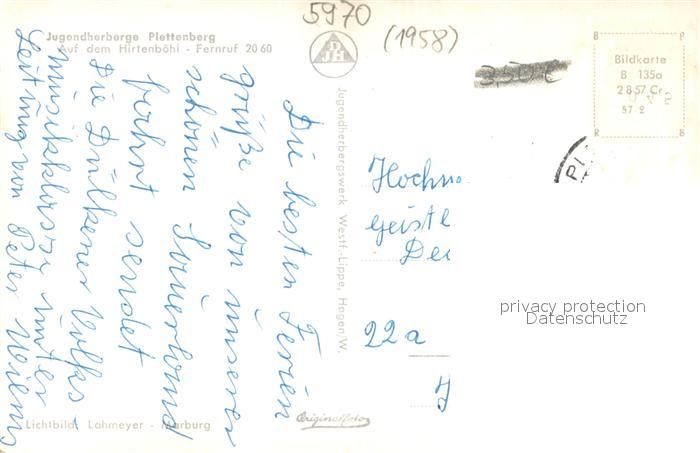 Jugendherberge Plettenberg
Auf dem Hirtenböhl - Fernruf 20 60
5970
(1958)
3,50 €
Bildkarte
B 135a
2 8 57 Cr
57 2
DJH
Jugendherbergswerk Westf.-Lippe, Hagen/W.
Die besten Ferien
grüße von unserer
schönen Sauerland
fahrt sendet
Die Dülkener Volks
musikklasse unter
Leitung von Peter
Hochw
Geistl
De
22a
PL
privacy protection
Datenschutz
Lichtbild: Lahmeyer - Marburg
Originalfoto